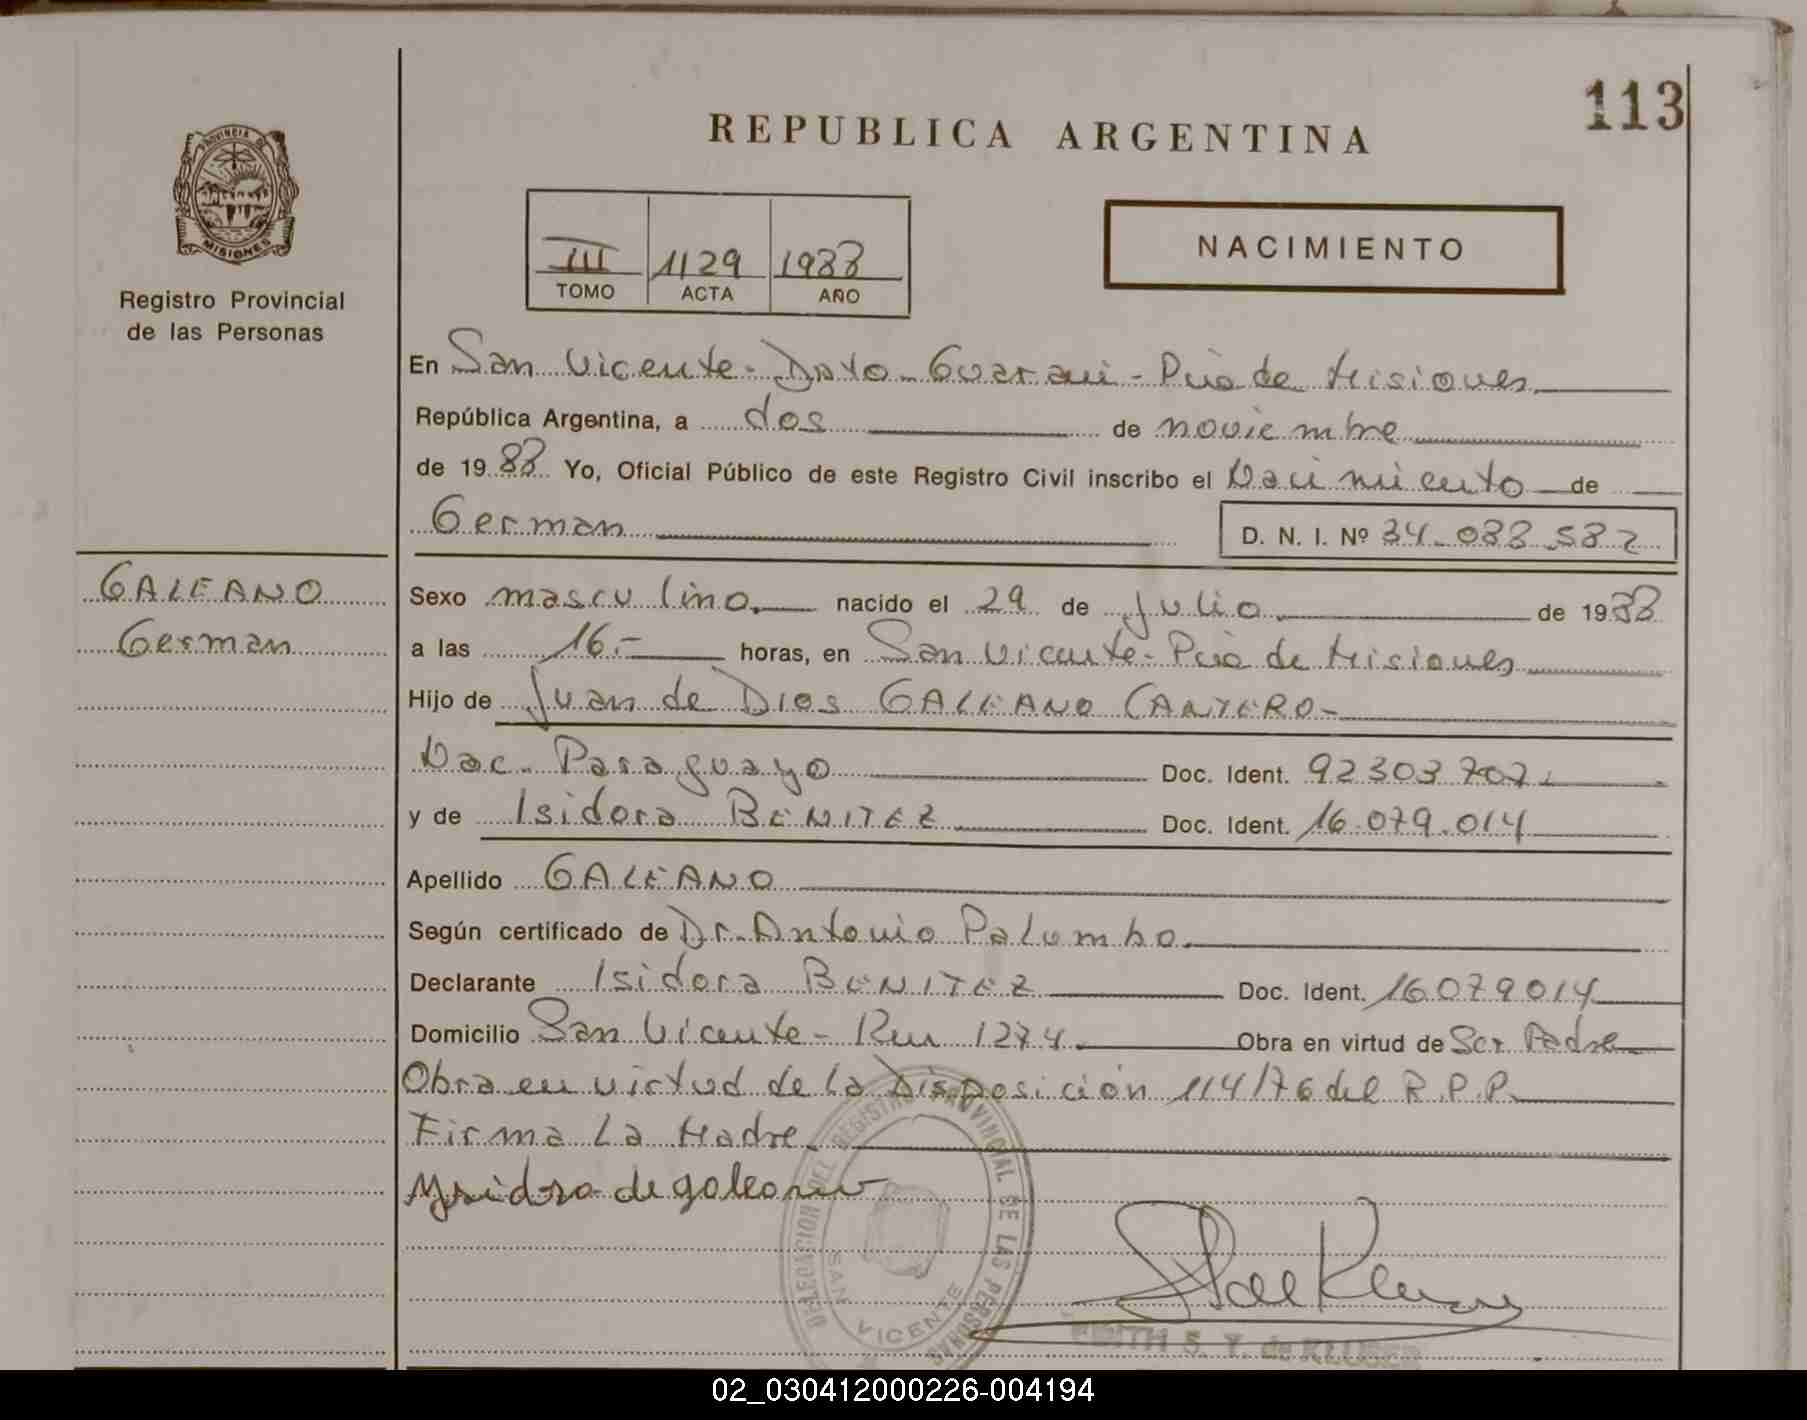 113
REPUBLICA ARGENTINA
PROVINCIA DE
MISIONES
Registro Provincial
de las Personas
III 1129 1988
TOMO ACTA AÑO
NACIMIENTO
En San Vicente - Dpto - Guarani - Pcia de Misiones
República Argentina, a dos de noviembre
de 1988 Yo, Oficial Público de este Registro Civil inscribo el Nacimiento de
German D. N. I. Nº 34.088.582
GALEANO
German
Sexo masculino. nacido el 29 de Julio de 1988
a las 16.- horas, en San Vicente - Pcia de Misiones
Hijo de Juan de Dios GALEANO CANTERO -
Nac. Paraguayo Doc. Ident. 92303707.
y de Isidora BENITEZ Doc. Ident. 16.079.014
Apellido GALEANO
Según certificado de Dr. Antonio Palumbo.
Declarante Isidora BENITEZ Doc. Ident. 16079014
Domicilio San Vicente - Km 1274. Obra en virtud de Ser Padre
Obra en virtud de la Disposición 114/76 del R.P.P.
Firma La Madre.
Ysidora de galeano
DELEGACION DEL REGISTRO PROVINCIAL DE LAS PERSONAS
SAN VICENTE
EDITH S. T. de KLUGER
02_030412000226-004194